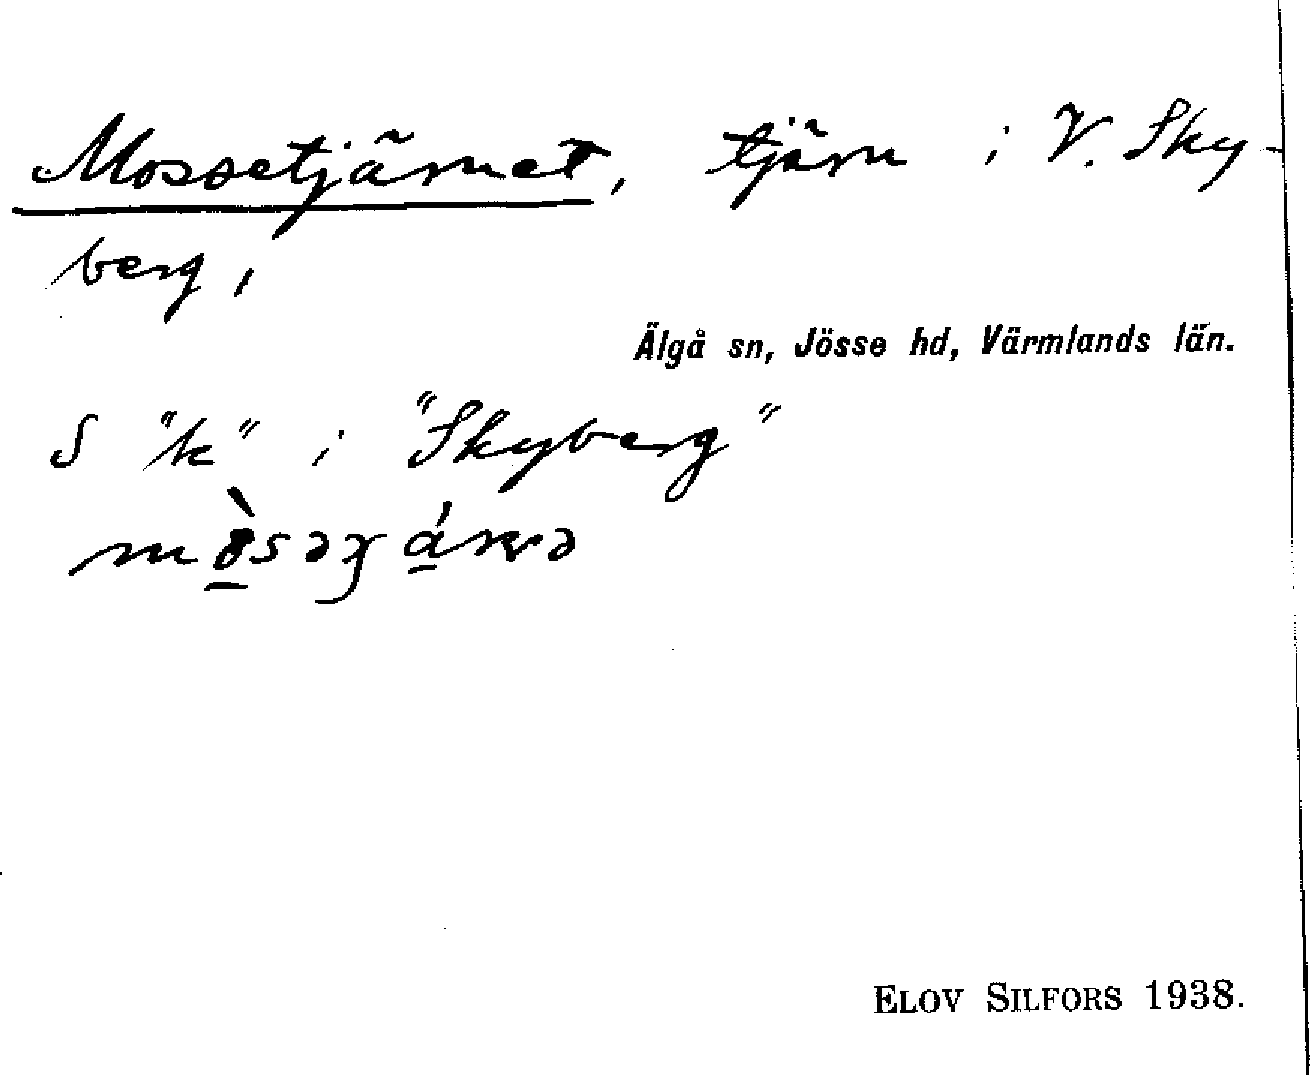 Mossetjärnet, tjärn i V. Sky-
berg,
Älgå sn, Jösse hd, Värmlands län.
S "k" i "Skyberg"
ELOV SILFORS 1938.